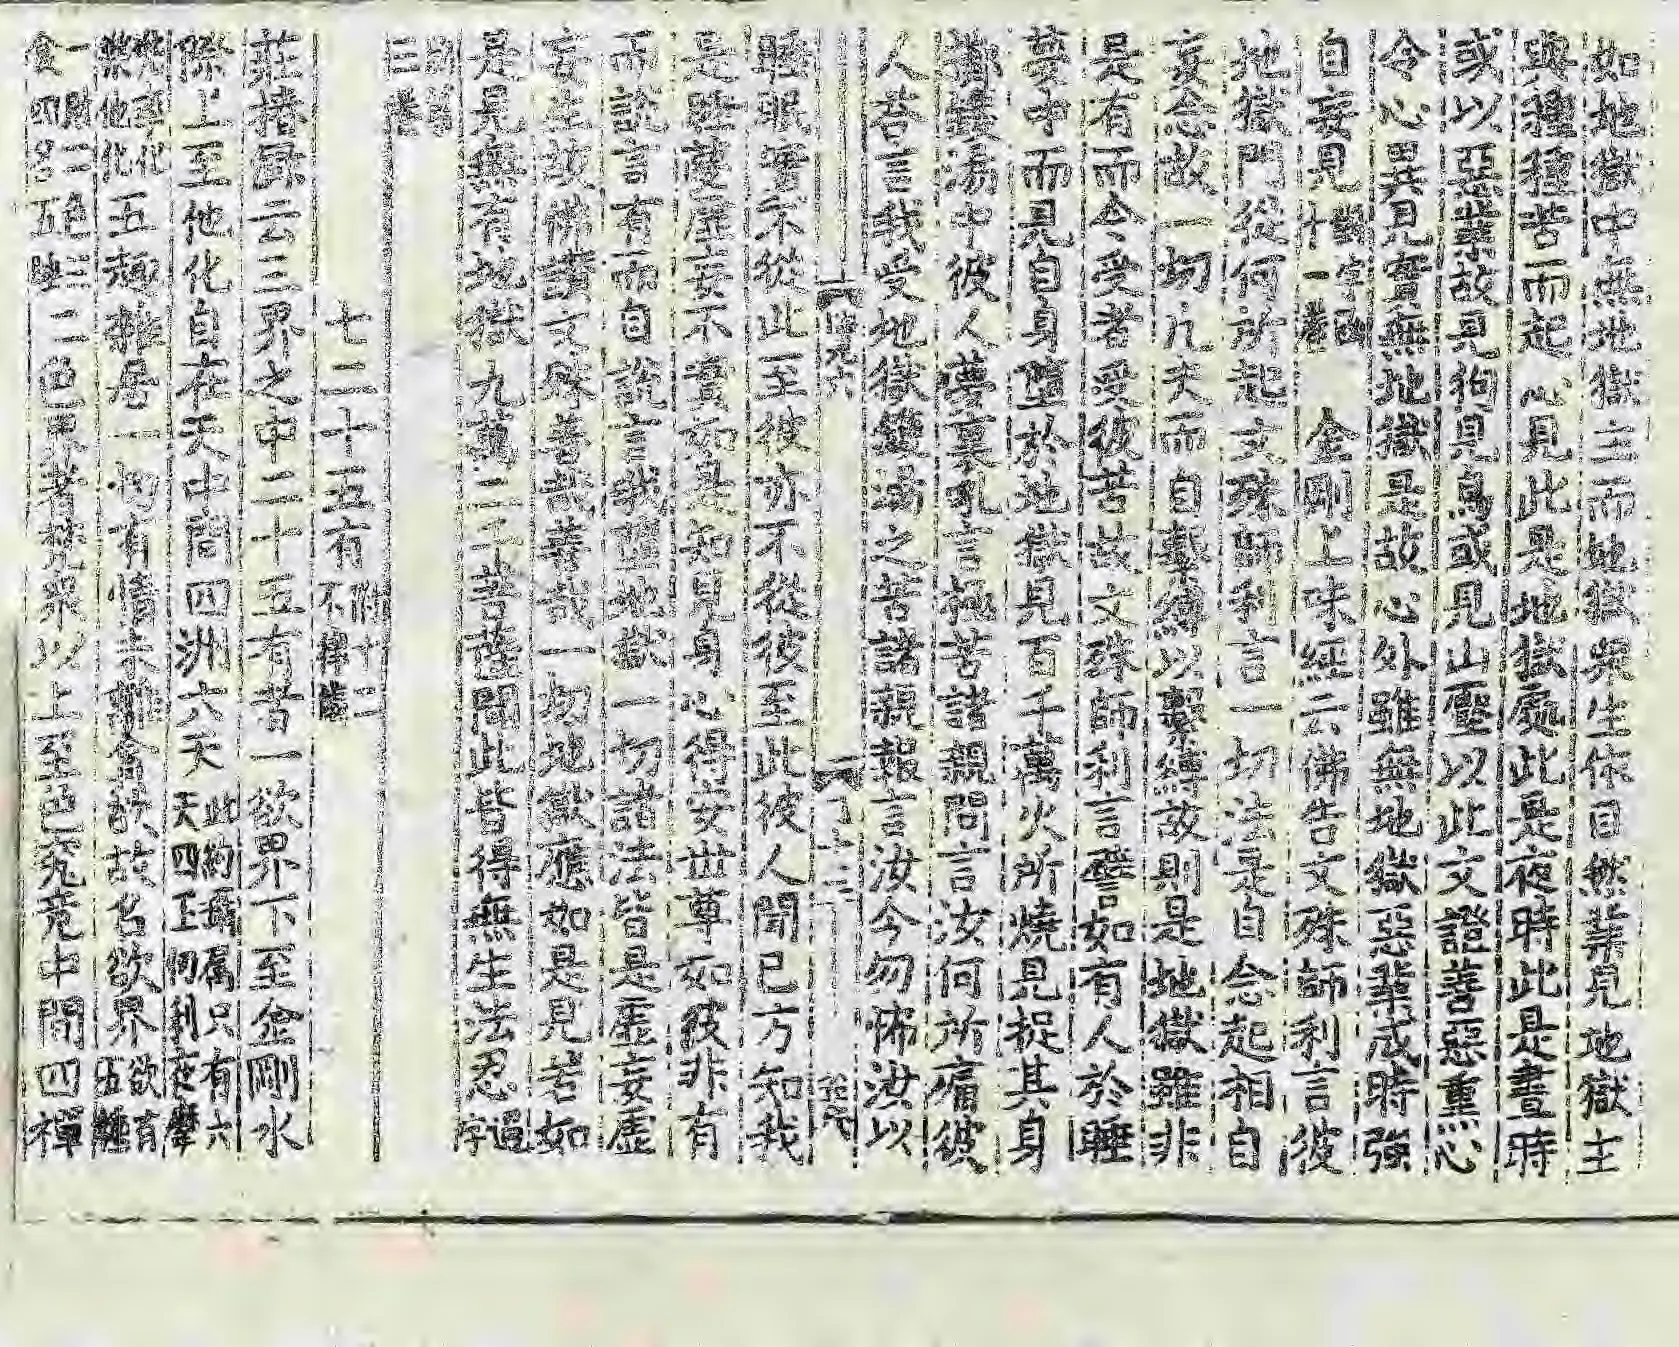 如地獄中無地獄主而地獄眾生依自然業見地獄主
與種種苦而起心見此是地獄處此是夜時此是晝時
或以惡業故見狗見烏或見山壓以此文證善惡熏心
令心異見實無地獄是故心外雖無地獄惡業成時強
自妄見 金剛上味經云佛告文殊師利言彼
地獄門從何所起文殊師利言一切法是自念起相自
妄念故一切凡夫而自繫縛以繫縛故則是地獄雖非
是有而今受者受彼苦故文殊師利言譬如有人於睡
夢中而見自身墮於地獄見百千萬火所燒見捉其身
擲鑊湯中彼人夢裏乳言極苦諸親問言汝何所痛彼
人答言我受地獄鑊湯之苦諸親報言汝今勿怖汝以
睡眠實不從此至彼亦不從彼至此彼人聞已方知我
是睡夢虛妄不實如是知見身心得安世尊如彼非有
而說言有而自說言我墮地獄一切諸法皆是虛妄虛
妄生故佛讚文殊善哉善哉一切地獄應如是見若如
是見無有地獄九萬二千菩薩聞此皆得無生法忍
七二十五有
莊椿錄云三界之中二十五有者一欲界下至金剛水
際上至他化自在天中間四洲六天此約 屬只有六天四王忉利夜摩
兜率化樂他化五趣雜居一切有情未離 欲故名欲界欲有五
一 二色三食四名五睡二色界者梵眾以上至色究竟中間四禪